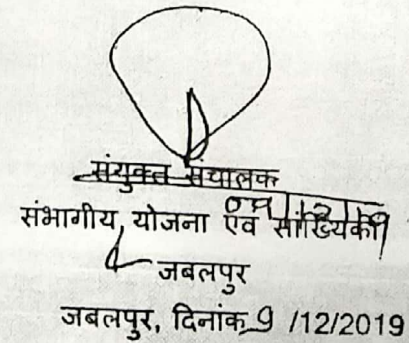 संयुक्त संचालक
संभागीय, योजना एवं सांख्यिकी
जबलपुर
जबलपुर, दिनांक 9 /12/2019